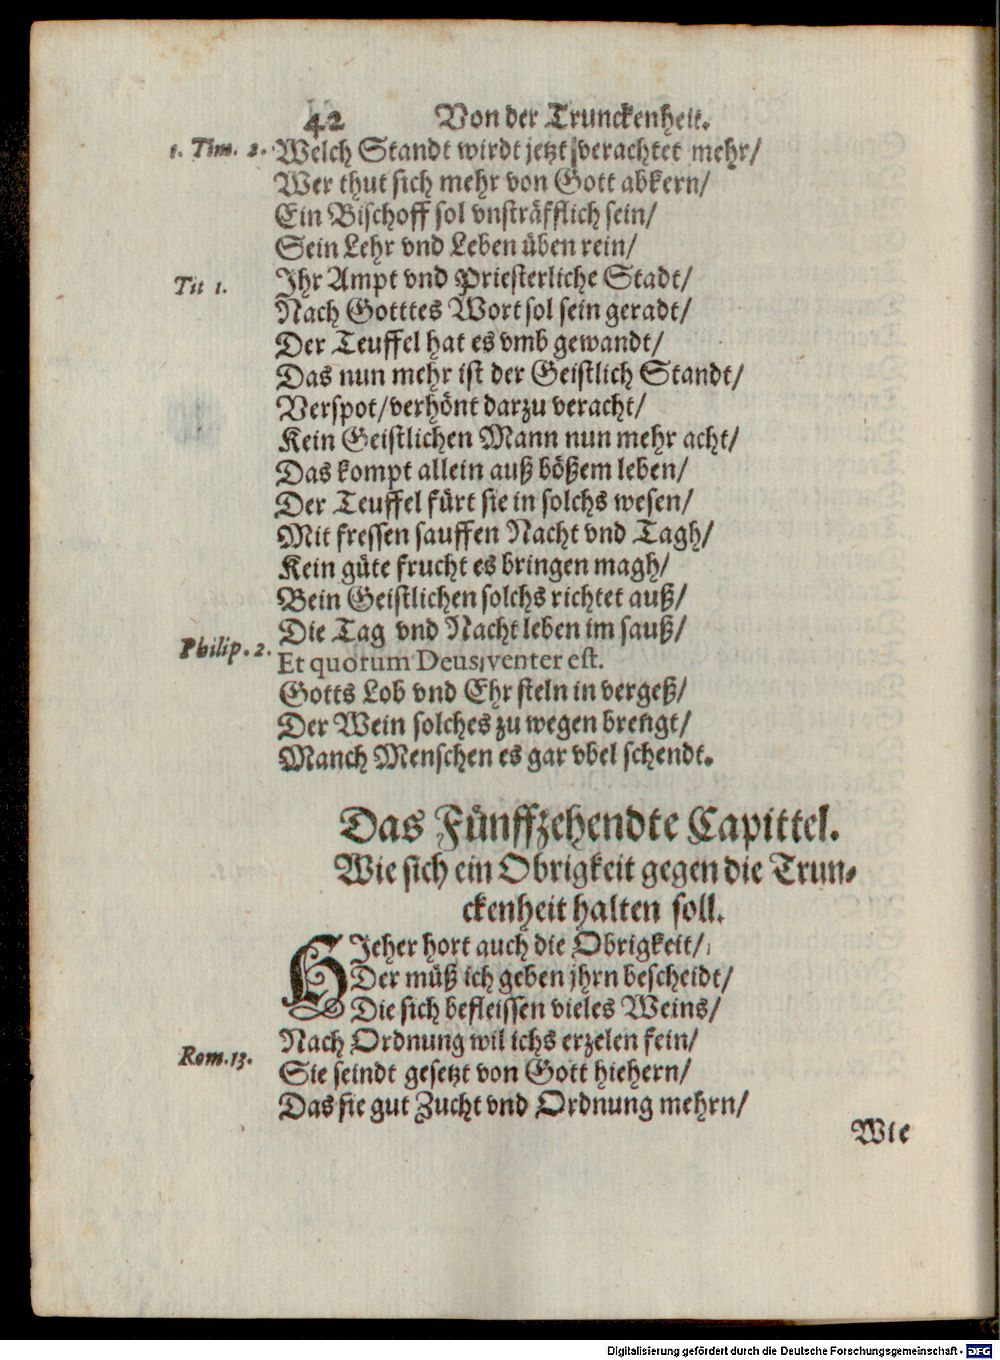 42 Von der Trunckenheit.
1. Tim. 2. Welch Standt wirdt jetzt verachtet mehr/
Wer thut sich mehr von Gott abkern/
Ein Bischoff sol vnsträfflich sein/
Sein Lehr vnd Leben üben rein/
Tit 1. Ihr Ampt vnd Priesterliche Stadt/
Nach Gotttes Wort sol sein geradt/
Der Teuffel hat es vmb gewandt/
Das nun mehr ist der Geistlich Standt/
Verspot/verhönt darzu veracht/
Kein Geistlichen Mann nun mehr acht/
Das kompt allein auß bößem leben/
Der Teuffel fürt sie in solchs wesen/
Mit fressen sauffen Nacht vnd Tagh/
Kein güte frucht es bringen magh/
Bein Geistlichen solchs richtet auß/
Die Tag vnd Nacht leben im sauß/
Philip. 2. Et quorum Deus, venter est.
Gotts Lob vnd Ehr steln in vergeß/
Der Wein solches zu wegen brengt/
Manch Menschen es gar vbel schendt.
Das Fünffzehendte Capittel.
Wie sich ein Obrigkeit gegen die Trun-
ckenheit halten soll.
HJeher hort auch die Obrigkeit/
Der müß ich geben jhrn bescheidt/
Die sich befleissen vieles Weins/
Nach Ordnung wil ichs erzelen fein/
Rom. 13. Sie seindt gesetzt von Gott hiehern/
Das sie gut Zucht vnd Ordnung mehrn/
Wie
Digitalisierung gefördert durch die Deutsche Forschungsgemeinschaft - DFG